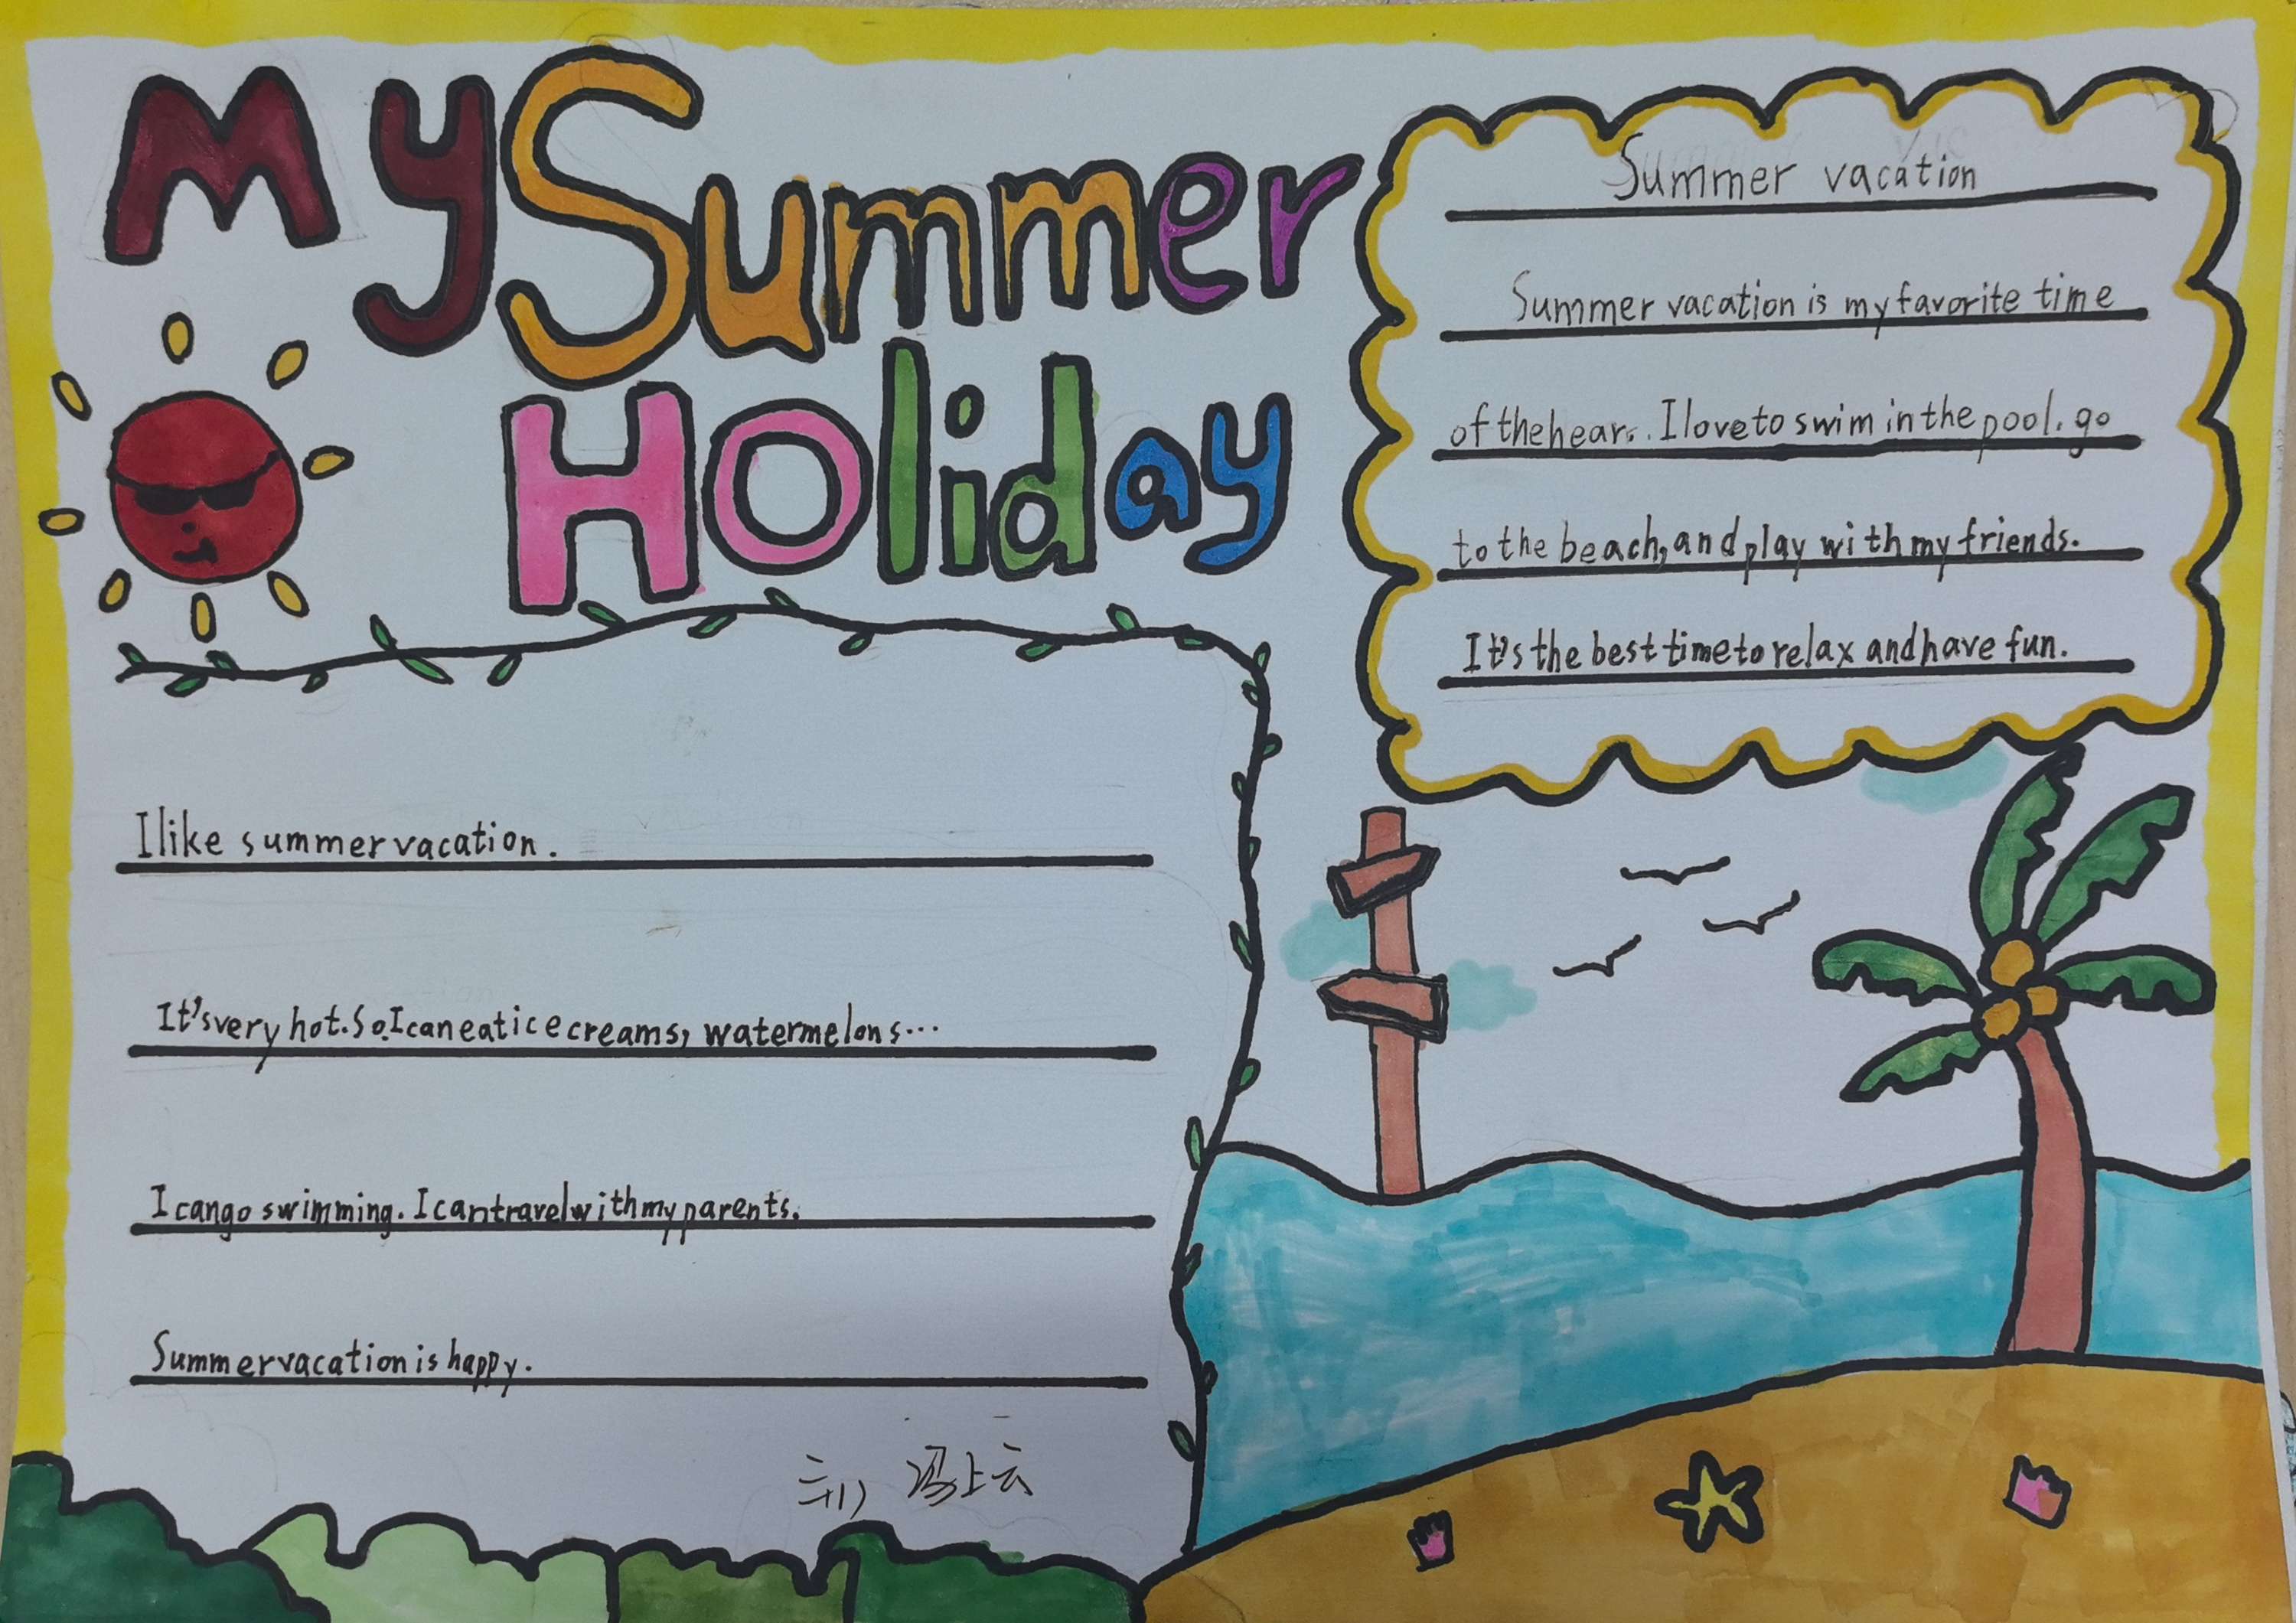 My Summer
Holiday
Summer vacation
Summer vacation is my favorite time
of the hears. I love to swim in the pool. go
to the beach, and play with my friends.
It's the best time to relax and have fun.
I like summer vacation.
It's very hot. So.I can eat ice creams, watermelons...
I can go swimming. I can travel with my parents.
Summer vacation is happy.
冯上云